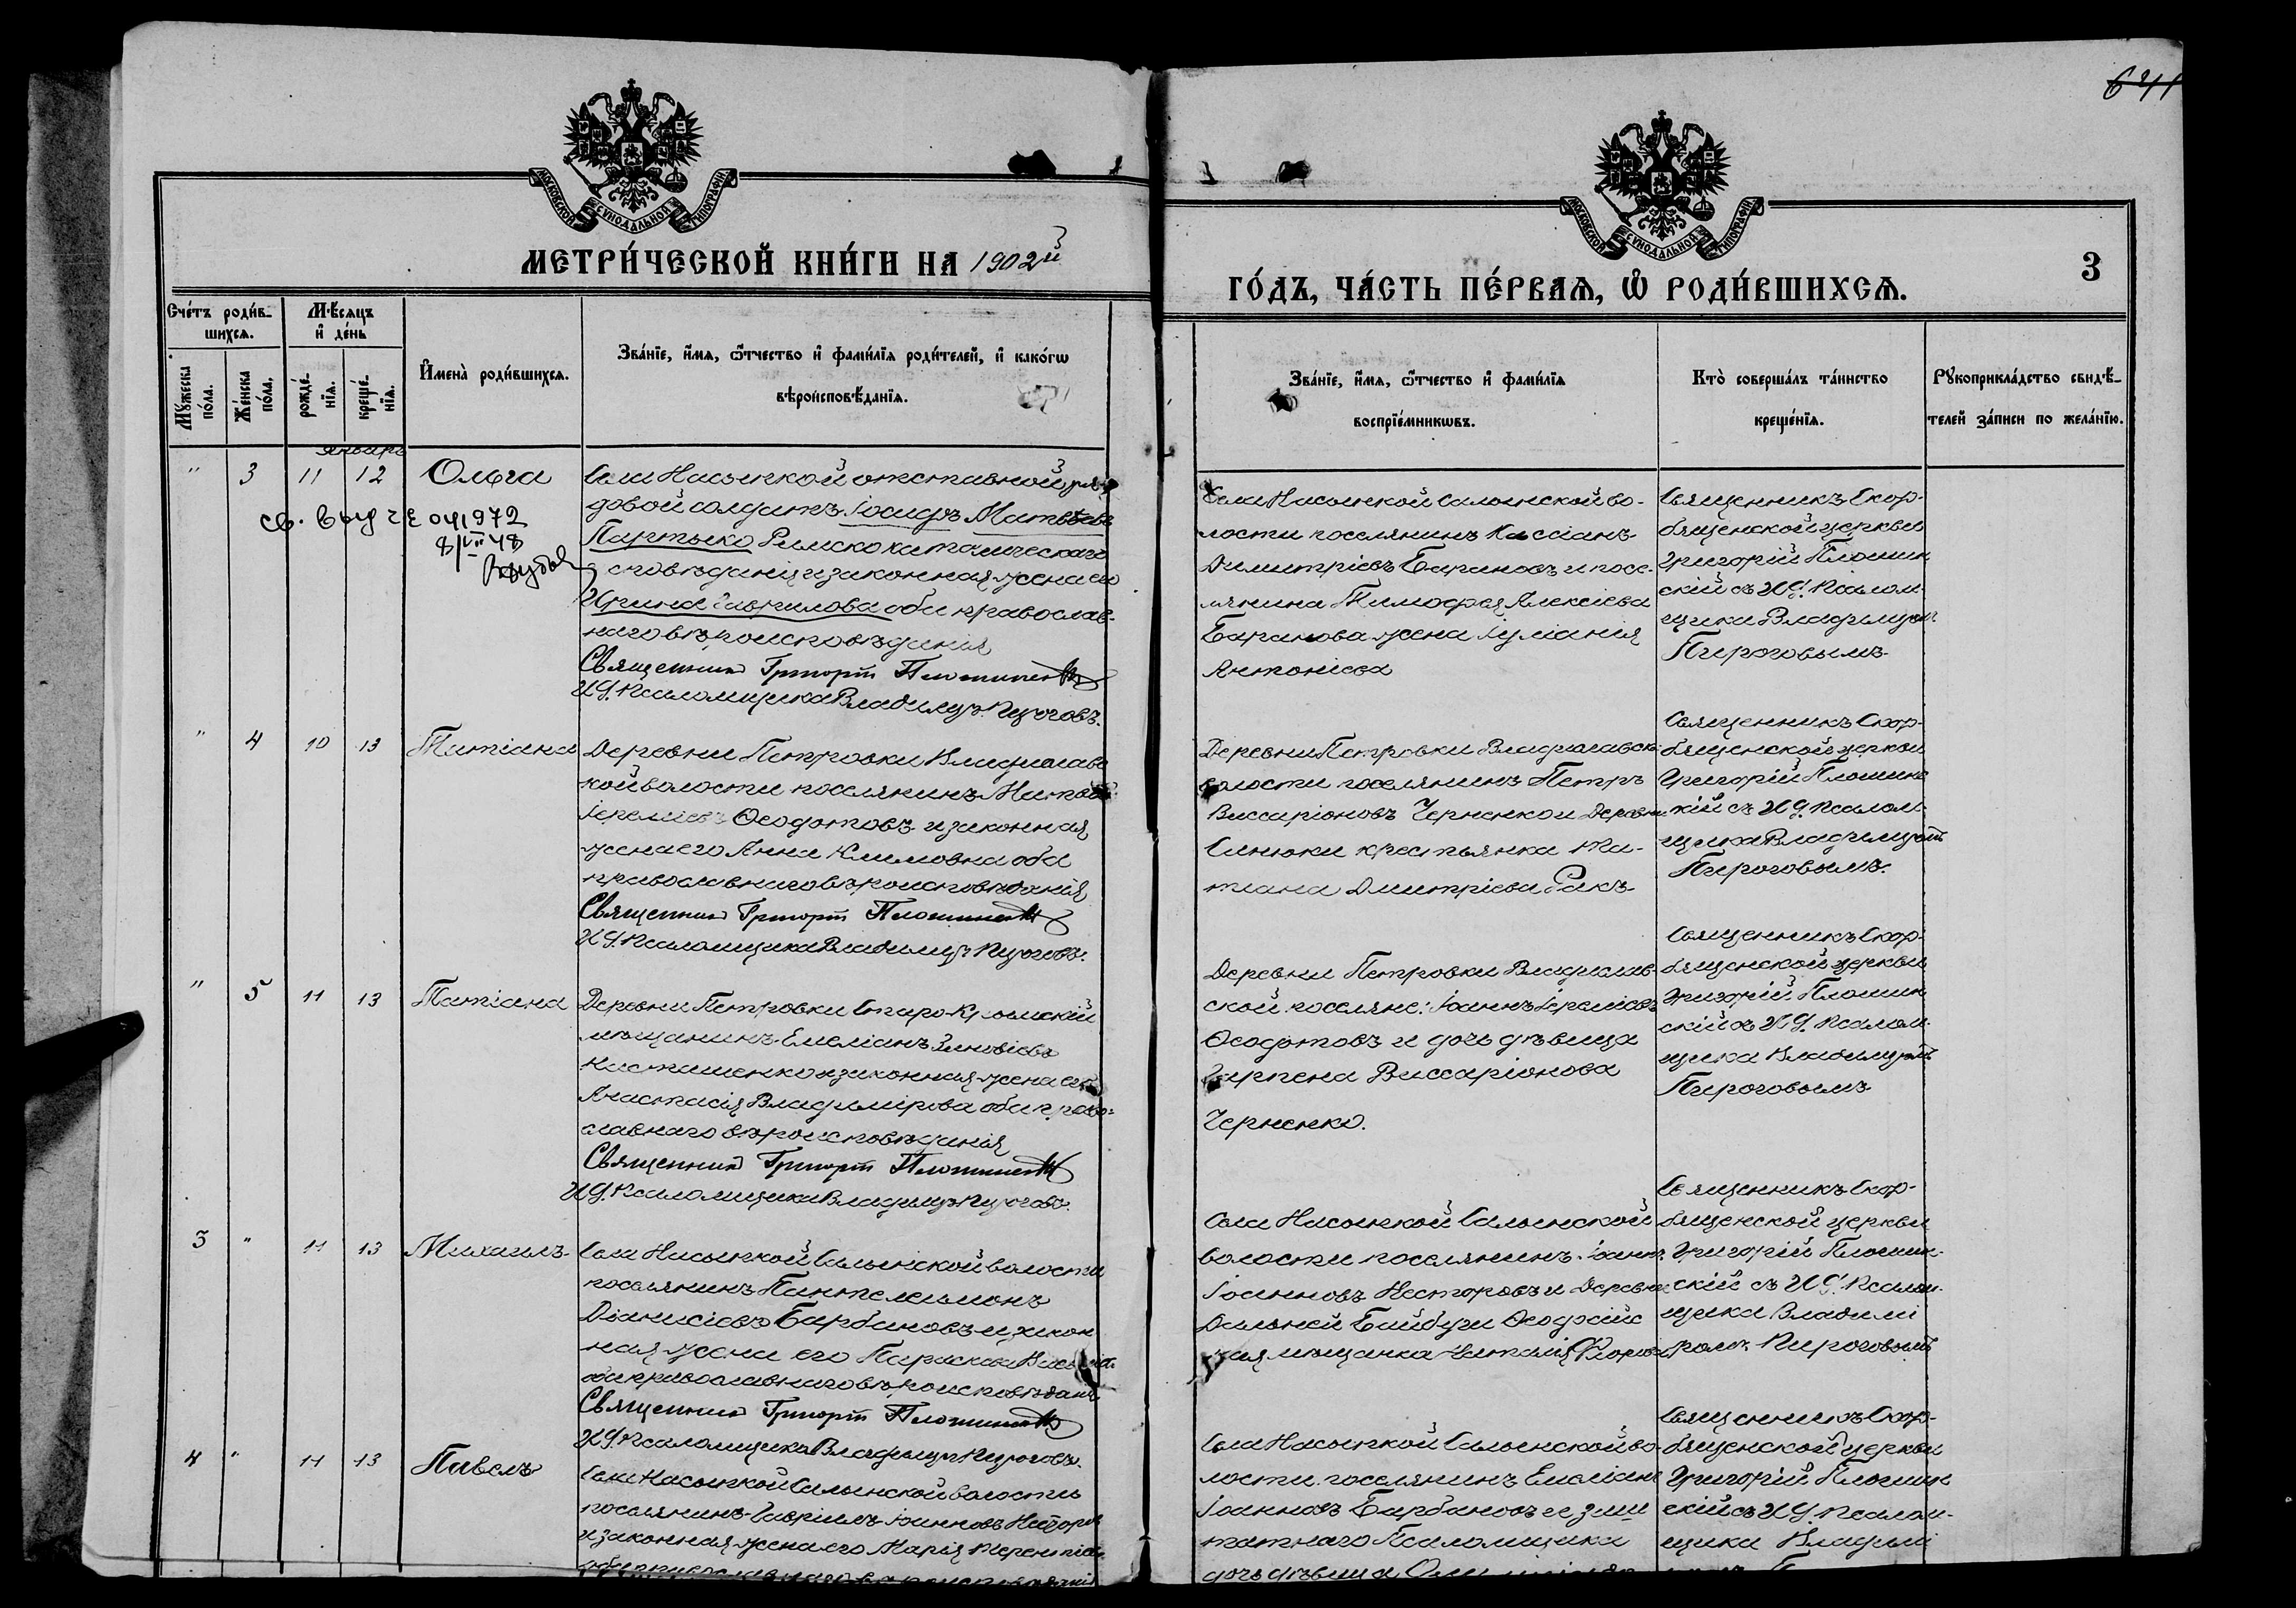 641
МОСКОВСКОЙ СѴНОДАЛЬНОЙ ТИПОГРАФІИ
МОСКОВСКОЙ СѴНОДАЛЬНОЙ ТИПОГРАФІИ
МЕТРИ́ЧЕСКОЙ КНИ́ГИ НА 1902й
ГО́ДЪ, ЧА́СТЬ ПЕ́РВАѦ, Ѡ҆ РОДИ́ВШИХСѦ.
3
Сче́тъ роди́в-
шихсѧ.
Мꙋжеска
по́ла.
Же́нска
по́ла.
Мѣ́сѧцъ
и҆ де́нь
рожде́-
нїѧ.
креще́-
нїѧ.
И҆мена̀ роди́вшихсѧ.
Зва́нїе, и҆́мѧ, ѻ҆́тчество и҆ фами́лїѧ роди́телей, и҆ како́гѡ
вѣроисповѣ́данїѧ.
Зва́нїе, и҆́мѧ, ѻ҆́тчество и҆ фами́лїѧ
воспрїе́мникѡвъ.
Кто̀ соверша́лъ та́инство
креще́нїѧ.
Рꙋкоприкла́дство свидѣ́-
телей за́писи по жела́нїю.
Январь
" 3 11 12 Ольга
Села Насыпкой отставной ря-
довой солдатъ Іосифъ Матвѣевъ
Партыко Римско католическаго
исповѣданія и законная жена его
Ирина Гаврилова оба православ-
наго вѣроисповѣданія
Священникъ Григорій Пломинскій
И.д. Псаломщика Владиміръ Пироговъ.
св. выд ЧЕ 041972
8/VII 48
Села Насыпкой Салынской во-
лости поселянинъ Кассіанъ
Димитріевъ Барановъ и посе-
лянина Тимофея Алексіева
Баранова жена Іуліанія
Антоніева
Священникъ Скор-
бященской церкви
Григорій Пломин
скій съ И.д. Псалом-
щика Владиміромъ
Пироговымъ
" 4 10 13 Татіана
Деревни Петровки Владиславс
кой волости поселянинъ Матвѣй
Іереміевъ Ѳеодотовъ и законная
жена его Анна Климовна оба
православнаго вѣроисповѣданія
Священникъ Григорій Пломинскій
И.д. Псаломщика Владиміръ Пироговъ.
Деревни Петровки Владиславск
волости поселянинъ Петръ
Виссаріоновъ Черненко и деревни
Синюки крестьянка Та-
тіана Дмитріева Ракъ
Священникъ Скор-
бященской церкви
Григорій Пломинс
кій съ И.д. Псалом-
щика Владиміромъ
Пироговымъ.
" 5 11 13 Татіана
Деревни Петровки Старо-Крымскій
мѣщанинъ Емеліанъ Зиновіевъ
Касташенко и законная жена его
Анастасія Владимірова оба право-
славнаго вѣроисповѣданія
Священникъ Григорій Пломинскій
И.д. Псаломщика Владиміръ Пироговъ.
Деревни Петровки Владислав-
ской поселяне: Іоаннъ Іереміевъ
Ѳеодотовъ и дочь дѣвица
Агрипена Виссаріонова
Черненко.
Священникъ Скор-
бященской церкви
Григорій Пломин
скій съ И.д. Псалом-
щика Владиміромъ
Пироговымъ
3 " 11 13 Михаилъ
Села Насыпкой Салынской волости
поселянинъ Пантелеимонъ
Діанисіевъ Барбановъ и закон
ная жена его Параскева
оба православнаго вѣроисповѣданія
Священникъ Григорій Пломинскій
И.д. Псаломщика Владиміръ Пироговъ
Села Насыпкой Салынской
волости поселянинъ Іоаннъ
Іоанновъ Несторовъ и деревни
Дальней Байбуги Ѳеодосійс
кая мѣщанка Наталія
Священникъ Скор-
бященской церкви
Григорій Пломин-
скій съ И.д. Псалом-
щика Владимі
ромъ Пироговымъ
4 " 11 13 Павелъ
Села Насыпкой Салынской волости
поселянинъ Гавріилъ Іоанновъ Несторов
и законная жена его Марія Терентіева
оба православнаго вѣроисповѣданія
Села Насыпкой Салынской во-
лости поселянинъ Емеліанъ
Іоанновъ Барбановъ и зашт
татнаго Псаломщика
дочь дѣвица
Священникъ Скор-
бященской церкви
Григорій Пломин
скій съ И.д. Псалом-
щика Владимі